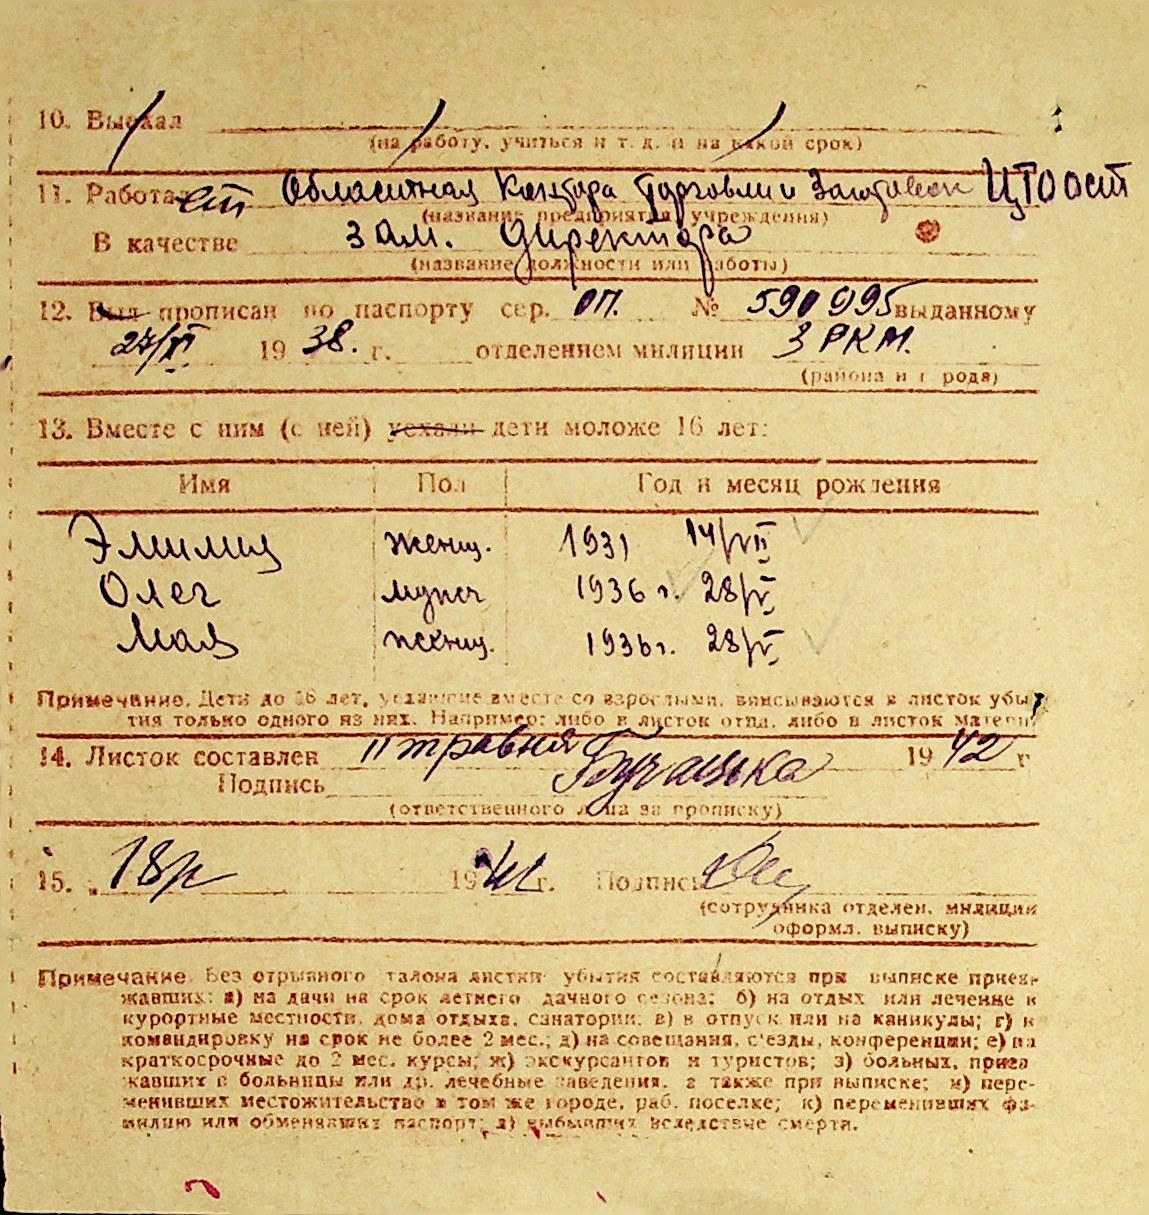 10. Выехал
(на работу, учиться и т. д. и на какой срок)
11. Работает Областная Контора Торговли и Заготовок
(название предприятия, учреждения)
В качестве зам. директора
(название должности или работы)
12. Был прописан по паспорту сер. ОП. № 590995 выданному
27/XI 1938. г. отделением милиции 3 РКМ.
(района и города)
13. Вместе с ним (с ней) уехали дети моложе 16 лет:
Имя Пол Год и месяц рождения
Эмилия женщ. 1931 14/VII
Олег мужч 1936 г. 28/V
Мая женщ. 1936 г. 28/V
Примечание. Дети до 16 лет, уехавшие вместе со взрослыми, вписываются в листок убы-
тия только одного из них. Например: либо в листок отца, либо в листок матери.
14. Листок составлен 11 травня 1942 г
Подпись
(ответственного лица за прописку)
15. 18 194 г. Подпись
(сотрудника отделен. милиции
оформл. выписку)
Примечание. Без отрывного талона листки убытия составляются при выписке приез-
жавших: а) на дачи на срок летнего дачного сезона; б) на отдых или лечение в
курортные местности, дома отдыха, санатории; в) в отпуск или на каникулы; г) в
командировку на срок не более 2 мес.; д) на совещания, с'езды, конференции; е) на
краткосрочные до 2 мес. курсы; ж) экскурсантов и туристов; з) больных, приез
жавших в больницы или др. лечебные заведения, а также при выписке; и) пере-
менивших местожительство в том же городе, раб. поселке; к) переменивших фа-
милию или обменявших паспорт; л) выбывших вследствие смерти.